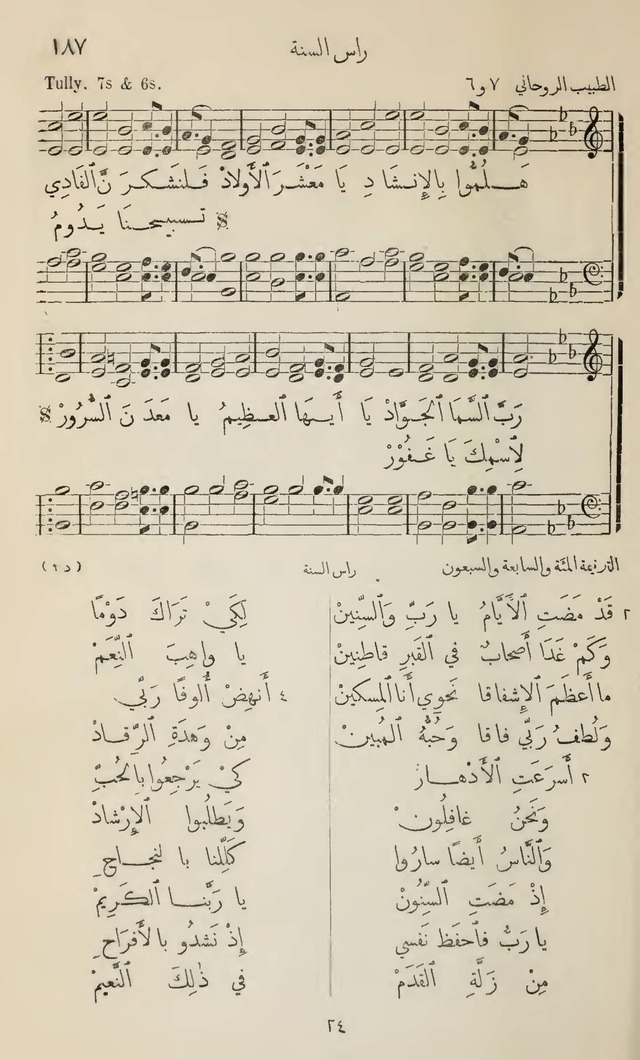 ١٨٧
راس السنة
Tully. 7s & 6s.
الطبيب الروحاني ٧ و ٦
هَـلُـمُّوا بِالإِنـشَـا دِ يَا مَعْشَرَ ٱلأَولادْ فَـلـنَـشـكـرَ نَّ ٱلفَادِي
𝄋 تـسبيـحـنَا يَـدُومُ
رَبَّ السَّمَا ٱلجَـوَّادْ يَا أَيـهَا ٱلعـظِيـمُ يا مَعدَ نَ ٱلسُّرُورْ 𝄋
لِٱسْمِكَ يَا غَـفُوْرْ
الترنيمة المئة والسابعة والسبعون
راس السنة
(د٦)
٢ قَدْ مَضَتِ ٱلأَيَّامُ يا رَبِّ وَٱلسِّنِينْ
وَكَمْ غَدَا أَصحَابٌ في ٱلقَبرِ قاطِنِينْ
ما أَعظَمَ ٱلإِشفاقا نَحوِي أَنا ٱلمِسكينْ
وَلُطفُ رَبِّي فاقا وَحُبُّهُ ٱلمُبِينْ
٢ أَسرَعَتِ ٱلأَدْهـارُ
وَنَحنُ غافِلُونْ
وَٱلنَّاسُ أَيضًا سارُوا
إِذْ مَضَتِ ٱلسِّنُونْ
يا رَبُّ فٱحفَظ نَفسِي
مِنْ زَلَّةِ ٱلقَدَمْ
لِكَيْ تَرَاكَ دَوْمًا
يا واهِبَ ٱلنِّعَمْ
٤ أَنهِضْ أُلوفًا رَبِّي
مِنْ وَهدَةِ ٱلرِّقـادْ
كَيْ يَرْجِعُوا بِالحُبِّ
وَيَطلُبوا ٱلإِرْشادْ
كَلِّلنا با لنجـاحِ
يا رَبَّنـا ٱلكَرِيمْ
إِذْ نَشدُو بالأَفرَاحِ
في ذٰلِكَ ٱلنَّعيمْ
٢٤